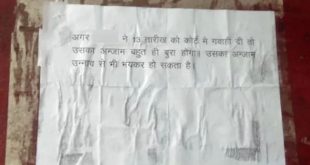 अगर ने 13 तारीख को कोर्ट मे गवाही दी तो
उसका अन्जाम बहुत ही बुरा होगा। उसका अन्जाम
उन्नाव से भी भयंकर हो सकता है।